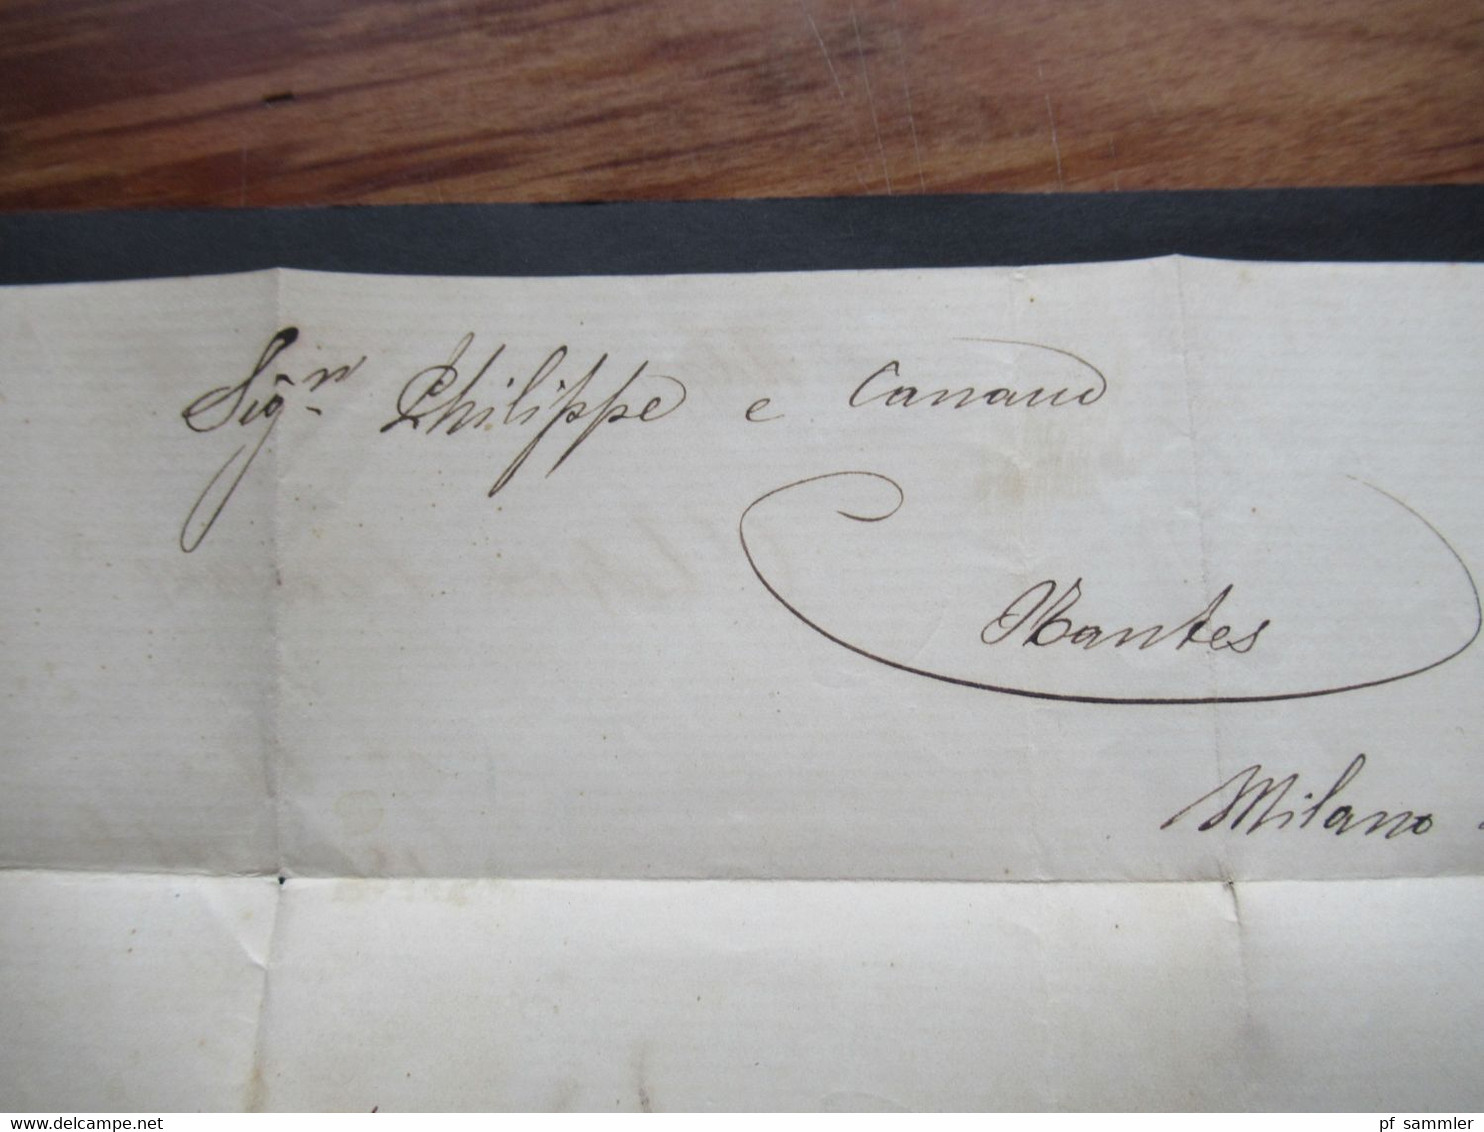 Sig.ri Philippe e Canaud
Nantes
Milano
www.delcampe.net
pf_sammler